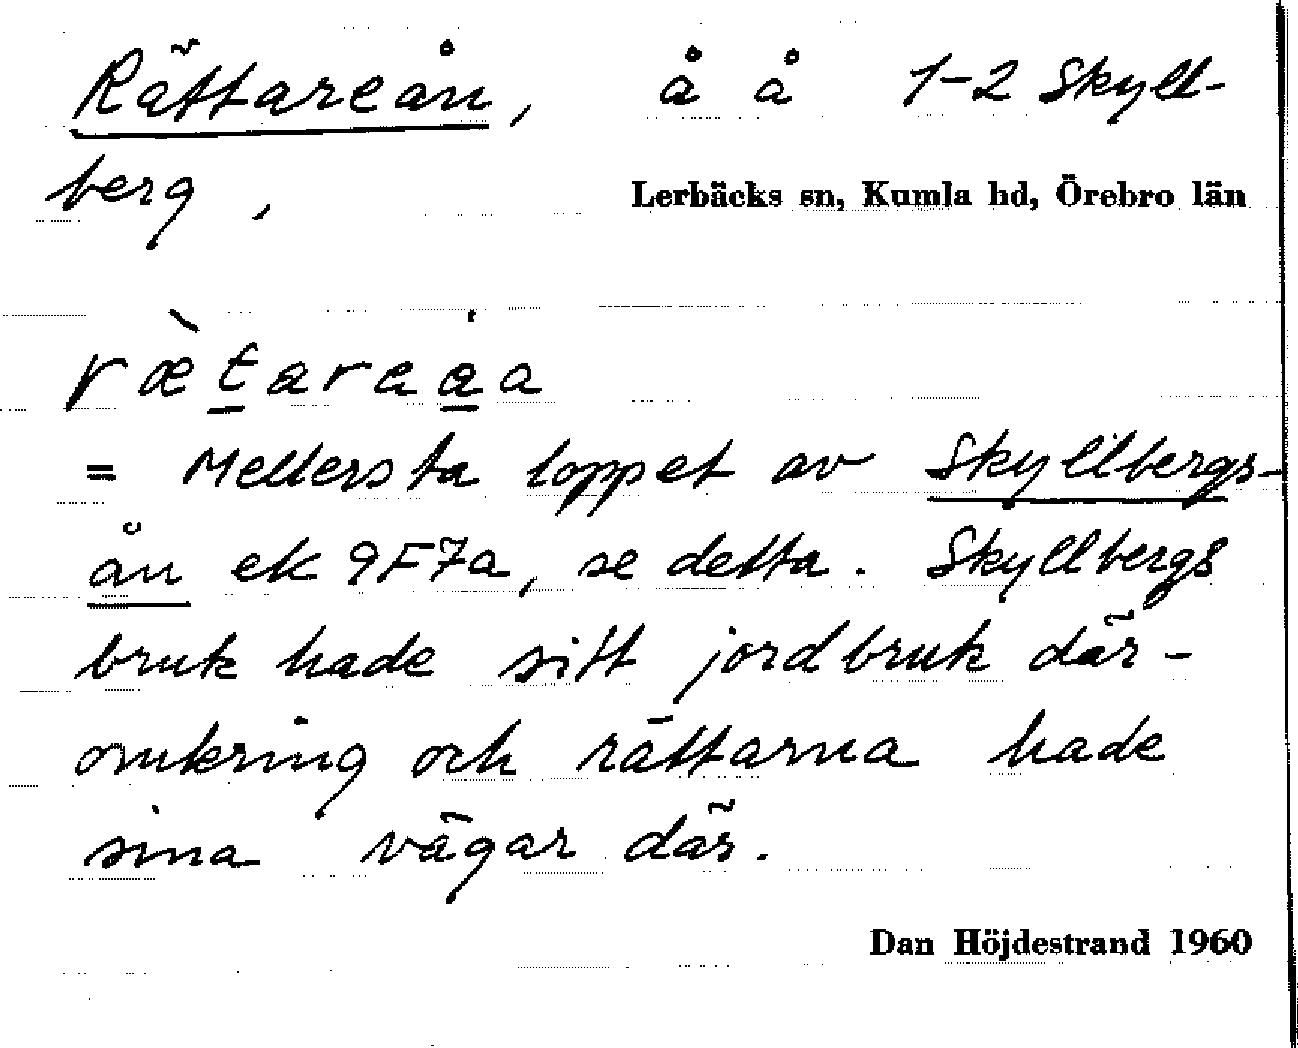 Rättareån, å å 1-2 Skyll-
berg,
Lerbäcks sn, Kumla hd, Örebro län
ræ̀taraáa
= Mellersta loppet av Skyllbergs-
ån ek 9F7a, se detta. Skyllbergs
bruk hade sitt jordbruk där-
omkring och rättarna hade
sina vägar där.
Dan Höjdestrand 1960